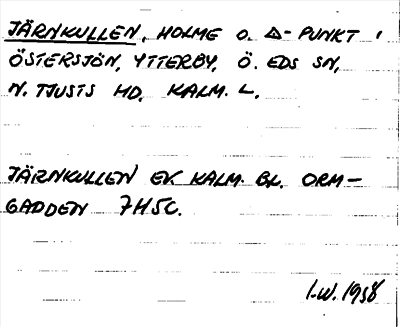 JÄRNKULLEN, HOLME O. Δ-PUNKT I
ÖSTERSJÖN, YTTERBY, Ö. EDS SN,
N. TJUSTS HD. KALM. L.
JÄRNKULLEN EK KALM. BL. ORM-
GADDEN 7H5C.
I.W. 1958